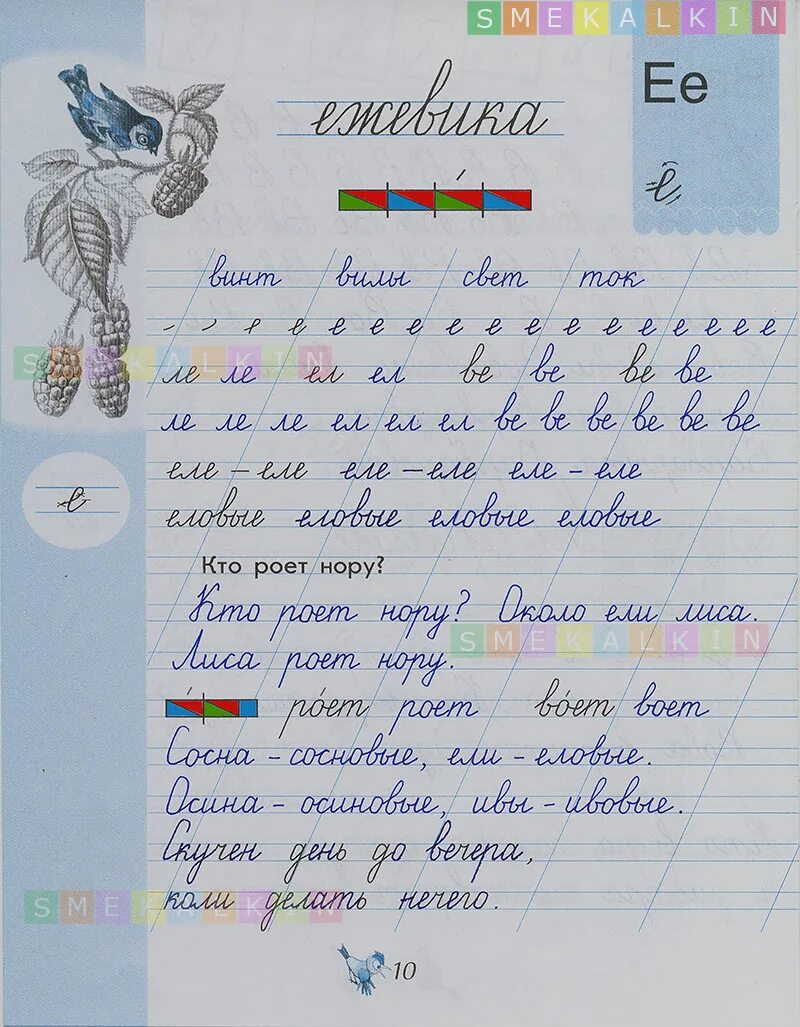 SMEKALKIN
Ее
ежевика
е
винт вилы свет ток
е е е е е е е е е е е е е е
ле ле ел ел ве ве ве ве
SMEKALKIN
ле ле ле ел ел ел ве ве ве ве ве ве
еле – еле еле – еле еле – еле
е
еловые еловые еловые еловые
Кто роет нору?
Кто роет нору? Около ели лиса.
SMEKALKIN
Лиса роет нору.
ро́ет роет во́ет воет
Сосна – сосновые, ели – еловые.
Осина – осиновые, ивы – ивовые.
Скучен день до вечера,
коли делать нечего.
SMEKALKIN
10